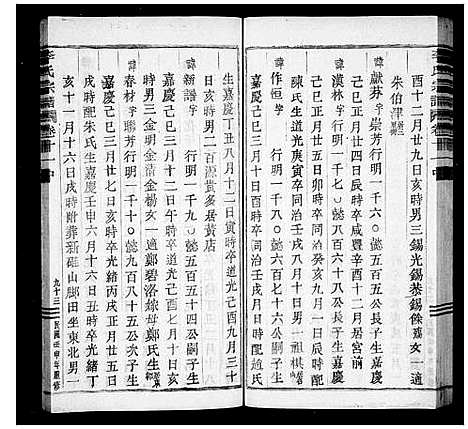 李氏宗譜 卷十一 中
酉十二月廿九日亥時男三錫光錫恭錫餘女一適
朱伯津
諱獻芬字崇芳行明一千六〇懿五百五公長子生嘉慶
己巳正月廿四日辰時卒咸豐辛酉十二月居宮前
諱漢林字 行明一千七〇懿六百五十公長子生嘉慶
己巳正月廿五日戌時卒同治癸亥九月一日辰時配
陳氏生道光庚寅卒同治壬戌八月十日男一祖棋
諱作恒字 行明一千八〇懿六百七十七公嗣子生
嘉慶己巳三月十日酉時卒同治壬戌月日時配趙氏
生嘉慶丁丑八月十二日寅時卒道光己酉九月三十
日亥時男二百源贵多居黃店
諱新譜字 行明一千九〇懿
嘉慶己巳三月十二日午時卒道光己酉七月十日午
時男三金明金清金楊女一適鄭碧洛嫁母鄭氏生
諱春材字聯芳行明一千十〇懿九百八十五公次子生
嘉慶己巳三月廿七日亥時卒光緒丙戌正月廿五日
戌時配朱氏生嘉慶壬申六月十六日丑時卒光緒丁
亥十一月十六日戌時附葬新畈山脚田坐東北男一
李氏宗譜 卷十一 中
九十三 民國壬申年重修